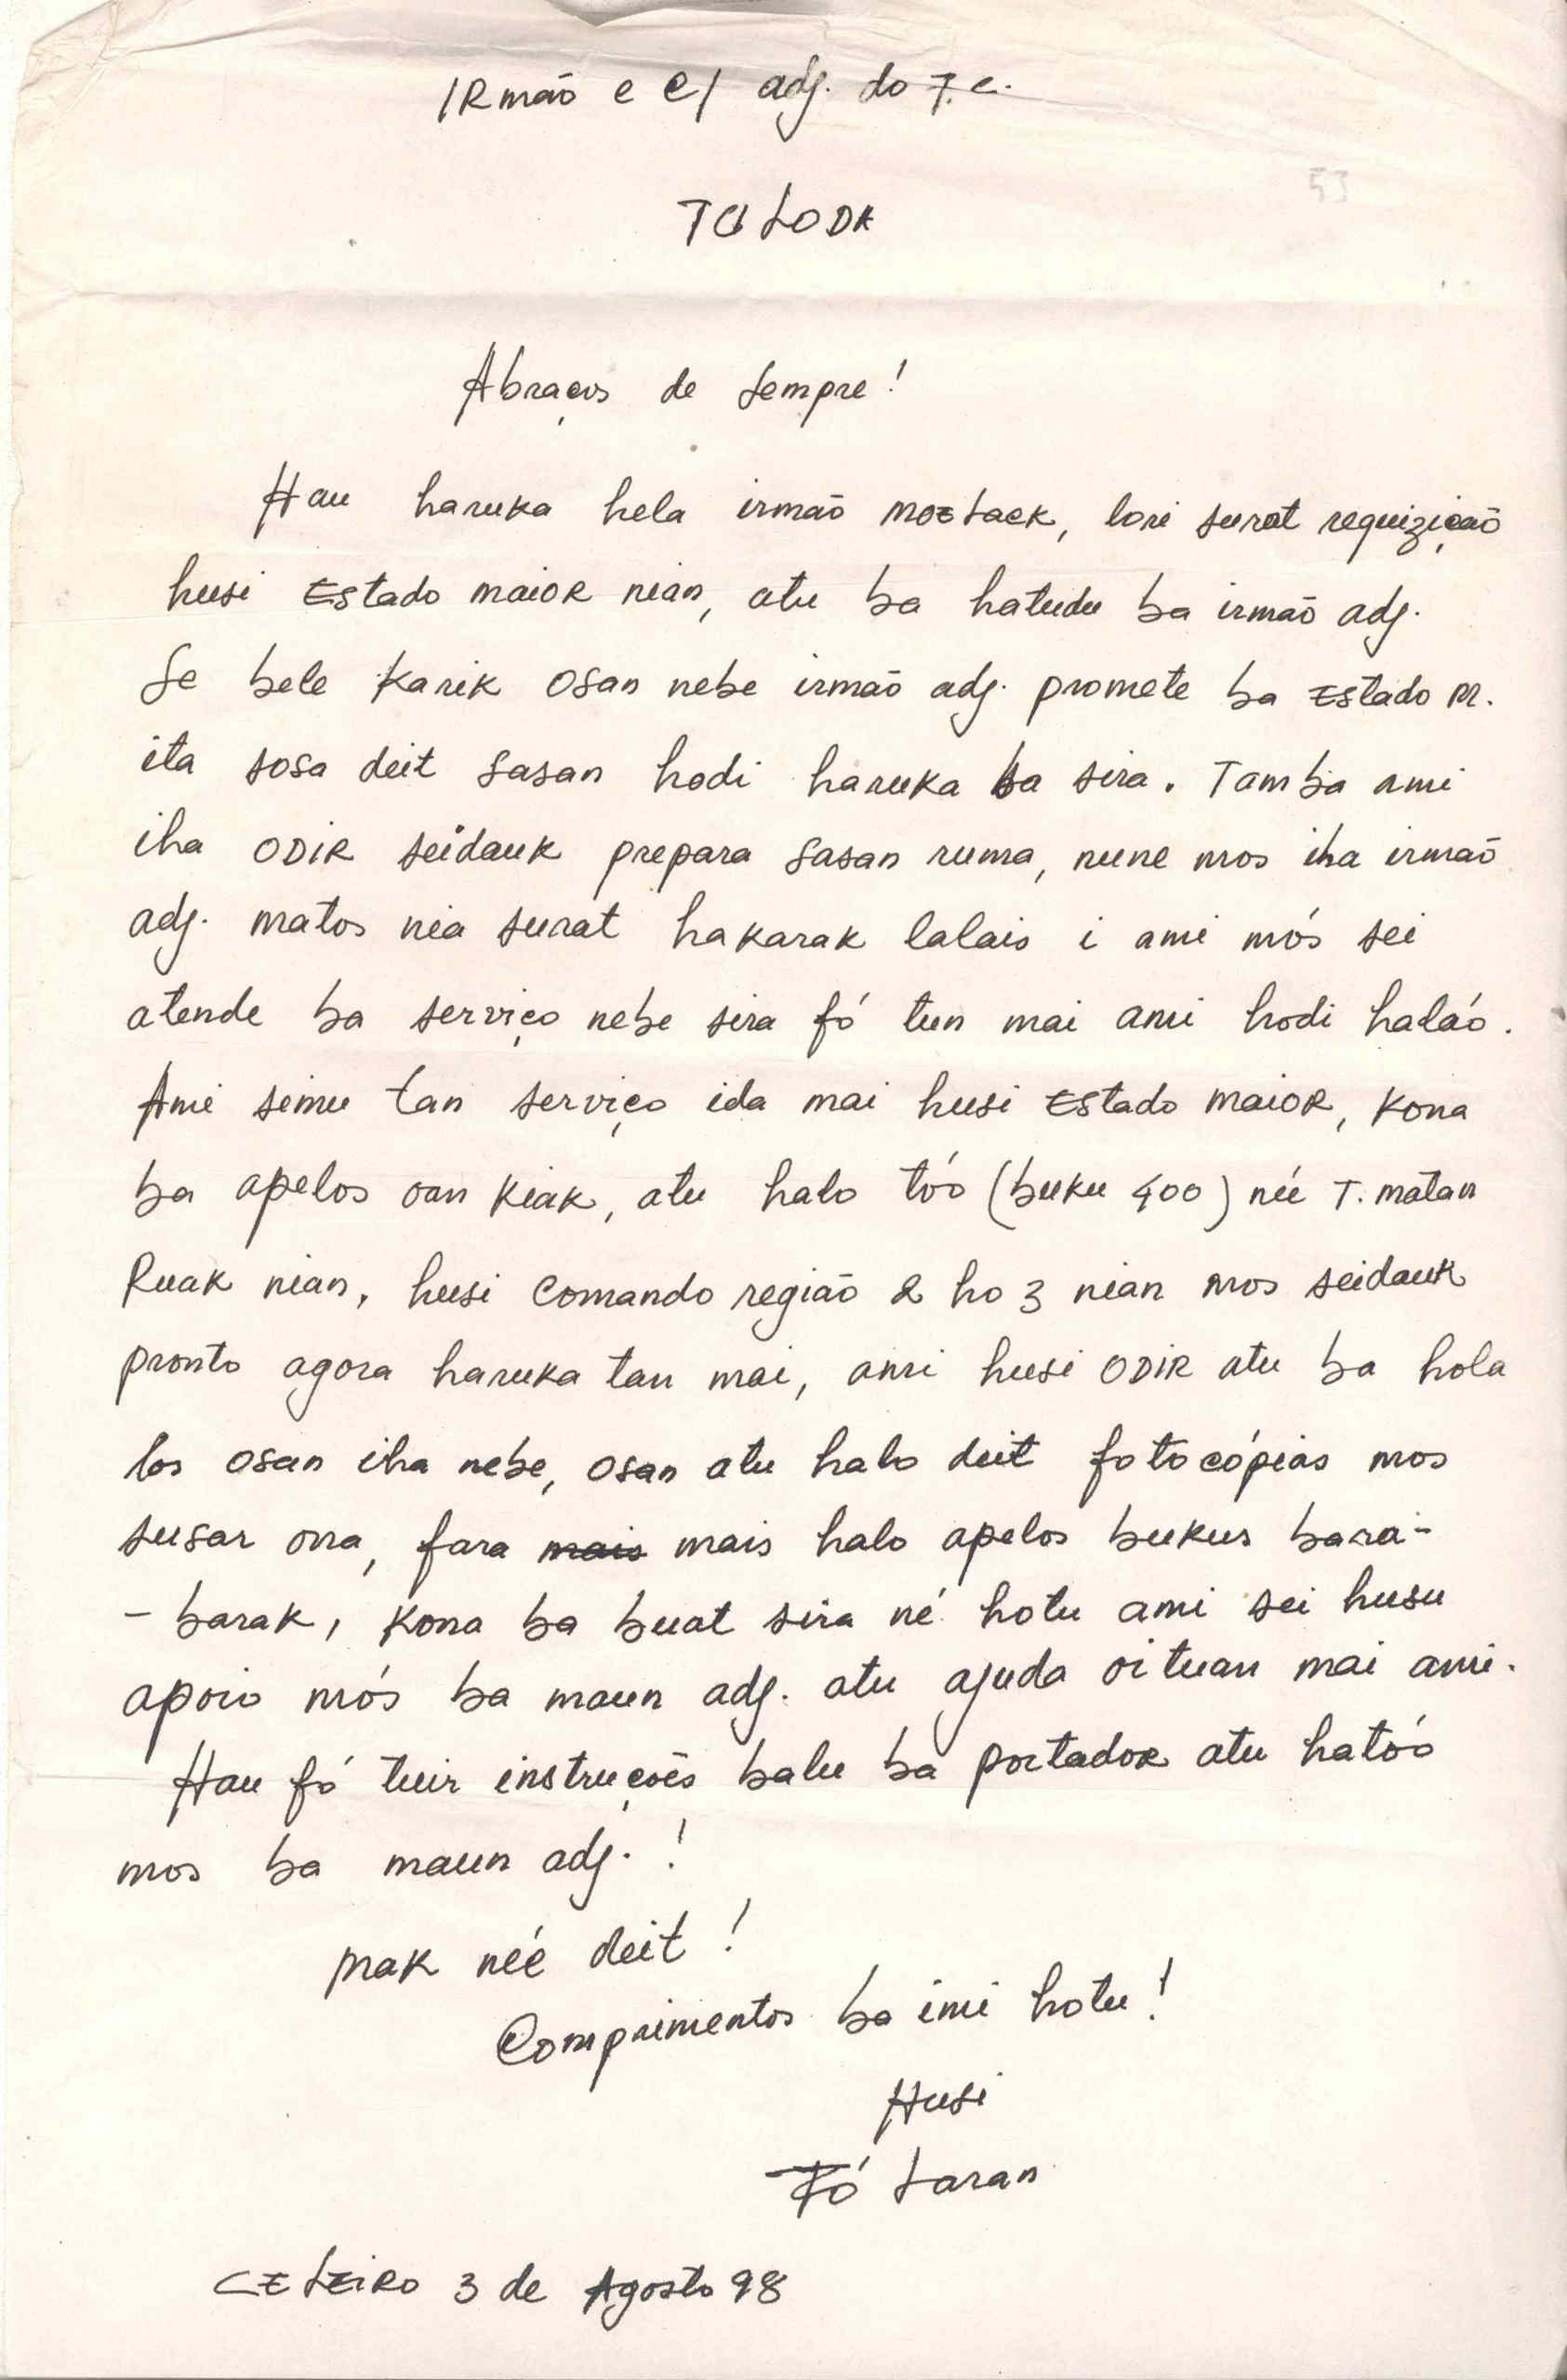 IRmão e C/ adj. do F.C.
53
TULODK
Abraços de sempre!
Hau haruka hela irmão mozLaek, lori surat requizição
husi Estado maioR nian, atu ba hatudu ba irmão adj.
Se bele karik osan nebe irmão adj. promete ba Estado M.
ita sosa deit sasan hodi haruka ba sira. Tamba ami
iha ODIR seidauk prepara sasan ruma, nune mos iha irmão
adj. matos nia surat hakarak lalais i ami mós sei
atende ba serviço nebe sira fó tun mai ami hodi halaó.
Ami simu tan serviço ida mai husi Estado maioR, kona
ba apelos oan kiak, atu halo tóo (buku 400) neé T. matan
Ruak nian, husi Comando região 2 ho 3 nian mos seidauk
pronto agora haruka tan mai, ami husi ODIR atu ba hola
los osan iha nebe, osan atu halo deit fotocópias mos
susar ona, fara mais mais halo apelos bukus barai-
- barak, kona ba buat sira né hotu ami sei husu
apoio mós ba maun adj. atu ajuda oituan mai ami.
Hau fó tuir instruções balu ba portadoR atu hatóo
mos ba maun adj. !
mak neé deit !
Comprimentos ba imi hotu!
Husi
Fó Laran
CELEIRO 3 de Agosto 98